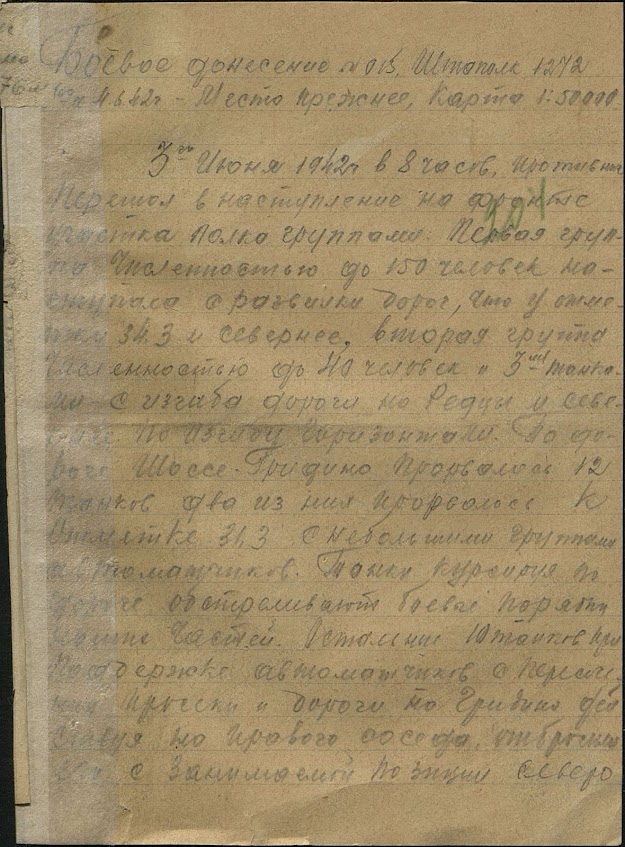 Боевое донесение № 015, Штаполк 1272
4.6.42г - Место прежнее, Карта 1:50000
3го Июня 1942г в 8 часов, противник
Перешол в наступление на фронте
участка Полка группами: Первая груп-
па Численностью до 150 человек на-
ступала с развилки дорог, что у отме-
тки 34.3 и севернее, вторая группа
Численностью до 40 человек и 3мя танка-
ми - с изгиба дороги на Редцы и севе-
рнее по изгибу Горизонтали. По до-
роге Шоссе-Гридино Прорвалось 12
танков два из них прорвалось к
Отметке 31,3 с небольшими группами
автоматчиков. Танки курсируя по
дороге обстреливают боевые порядки
наших Частей. Остальные 10 танков при
Поддержке автоматчиков с Пересече-
ния Просеки и дороги на Гридино дей
ствуя на правого соседа, отбросили
его с Занимаемой Позиции северо